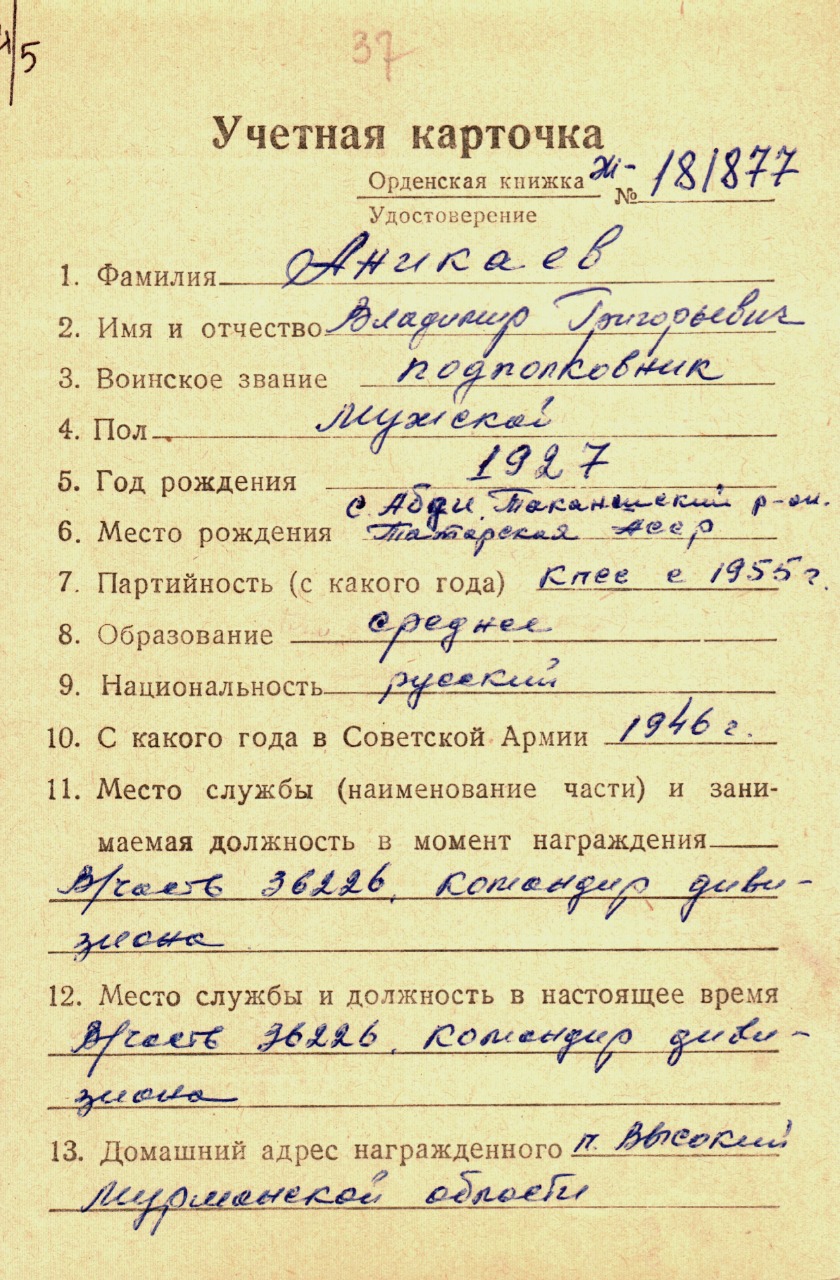 /5
37
Учетная карточка
Орденская книжка Ж-
№ 181877
Удостоверение
1. Фамилия Аникаев
2. Имя и отчество Владимир Григорьевич
3. Воинское звание подполковник
4. Пол Мужской
5. Год рождения 1927
с. Абди, Таканышский р-он.
6. Место рождения Татарская АССР
7. Партийность (с какого года) КПСС с 1955 г.
8. Образование среднее
9. Национальность русский
10. С какого года в Советской Армии 1946 г.
11. Место службы (наименование части) и зани-
маемая должность в момент награждения
В/часть 36226, командир диви-
зиона
12. Место службы и должность в настоящее время
В/часть 36226, командир диви-
зиона
13. Домашний адрес награжденного п. Высокий
Мурманской области